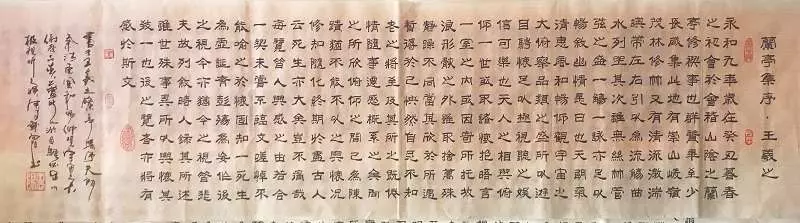 蘭亭集序·王羲之
永和九年歲在癸丑暮春
之初會於會稽山陰之蘭
亭修稧事也群賢畢至少
長咸集此地有崇山峻嶺
茂林修竹又有清流激湍
暎帶左右引以為流觴曲
水列坐其次雖無絲竹管
弦之盛一觴一詠亦足以
暢敘幽情是日也天朗氣
清惠風和暢仰觀宇宙之
大俯察品類之盛所以遊
目騁懷足以極視聽之娛
信可樂也夫人之相與俯
仰一世或取諸懷抱晤言
一室之內或因寄所託放
浪形骸之外雖取捨萬殊
靜躁不同當其欣於所遇
暫得於己快然自足不知
老之將至及其所之既倦
情隨事遷感慨系之矣向
之所欣俯仰之間已為陳
蹟猶不能不以之興懷況
修短隨化終期於盡古人
云死生亦大矣豈不痛哉
每覽昔人興感之由若合
一契未嘗不臨文嗟悼不
能喻之於懷固知一死生
為虛誕齊彭殤為妄作後
之視今亦猶今之視昔悲
夫故列敘時人錄其所述
雖世殊事異所以興懷其
致一也後之覽者亦將有
感於斯文